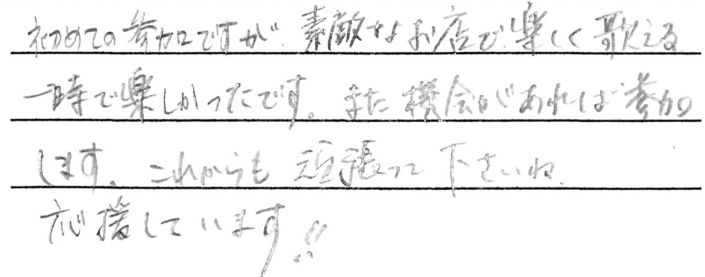 初めての参加ですが、素敵なお店で、楽しく歌える
一時で楽しかったです。また機会があれば参加
します。これからも頑張って下さいね。
応援しています!!